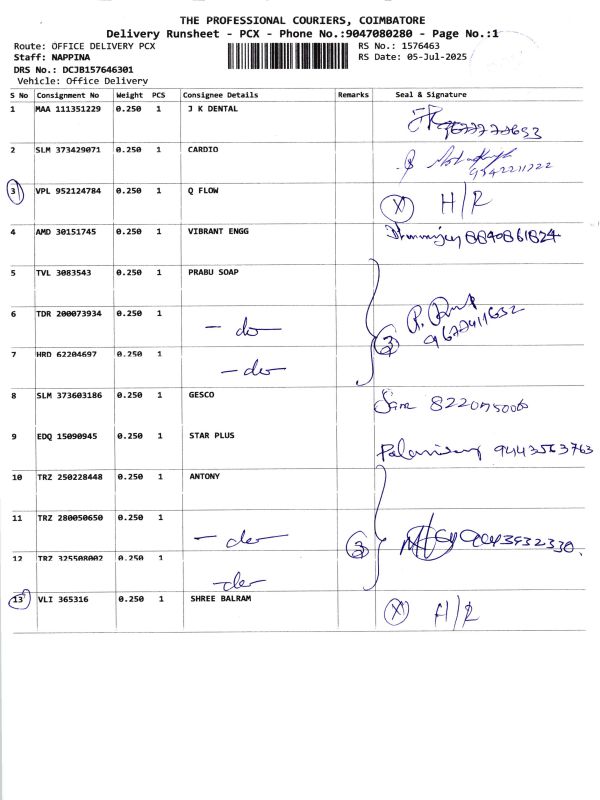 THE PROFESSIONAL COURIERS, COIMBATORE
Delivery Runsheet - PCX - Phone No.:9047080280 - Page No.:1
Route: OFFICE DELIVERY PCX RS No.: 1576463
Staff: NAPPINA RS Date: 05-Jul-2025
DRS No.: DCJB157646301
Vehicle: Office Delivery
S No Consignment No Weight PCS Consignee Details Remarks Seal & Signature
1 MAA 111351229 0.250 1 J K DENTAL
2 SLM 373429071 0.250 1 CARDIO
9342211222
3 VPL 952124784 0.250 1 Q FLOW X H/R
4 AMD 30151745 0.250 1 VIBRANT ENGG 8840861824
5 TVL 3083543 0.250 1 PRABU SOAP
6 TDR 200073934 0.250 1 - do -
3 9677411632
7 HRD 62204697 0.250 1 - do -
8 SLM 373603186 0.250 1 GESCO
9 EDQ 15090945 0.250 1 STAR PLUS
9443563763
10 TRZ 250228448 0.250 1 ANTONY
11 TRZ 280050650 0.250 1 - do -
3
12 TRZ 325508002 0.250 1 - do -
13 VLI 365316 0.250 1 SHREE BALRAM X H/R